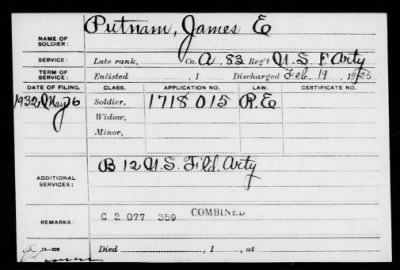 NAME OF SOLDIER: Putnam, James E
SERVICE: Late rank, Co. A, 83 Reg't U.S. F. Arty
TERM OF SERVICE: Enlisted , 1 Discharged Feb. 19, 1925
DATE OF FILING. CLASS. APPLICATION NO. LAW. CERTIFICATE NO.
1932 May 26 Soldier, 1718 015 R.E
Widow,
Minor,
ADDITIONAL SERVICES: B 12 U.S. Fld. Arty
REMARKS: C 2 077 359 COMBINED
Died , 1 , at